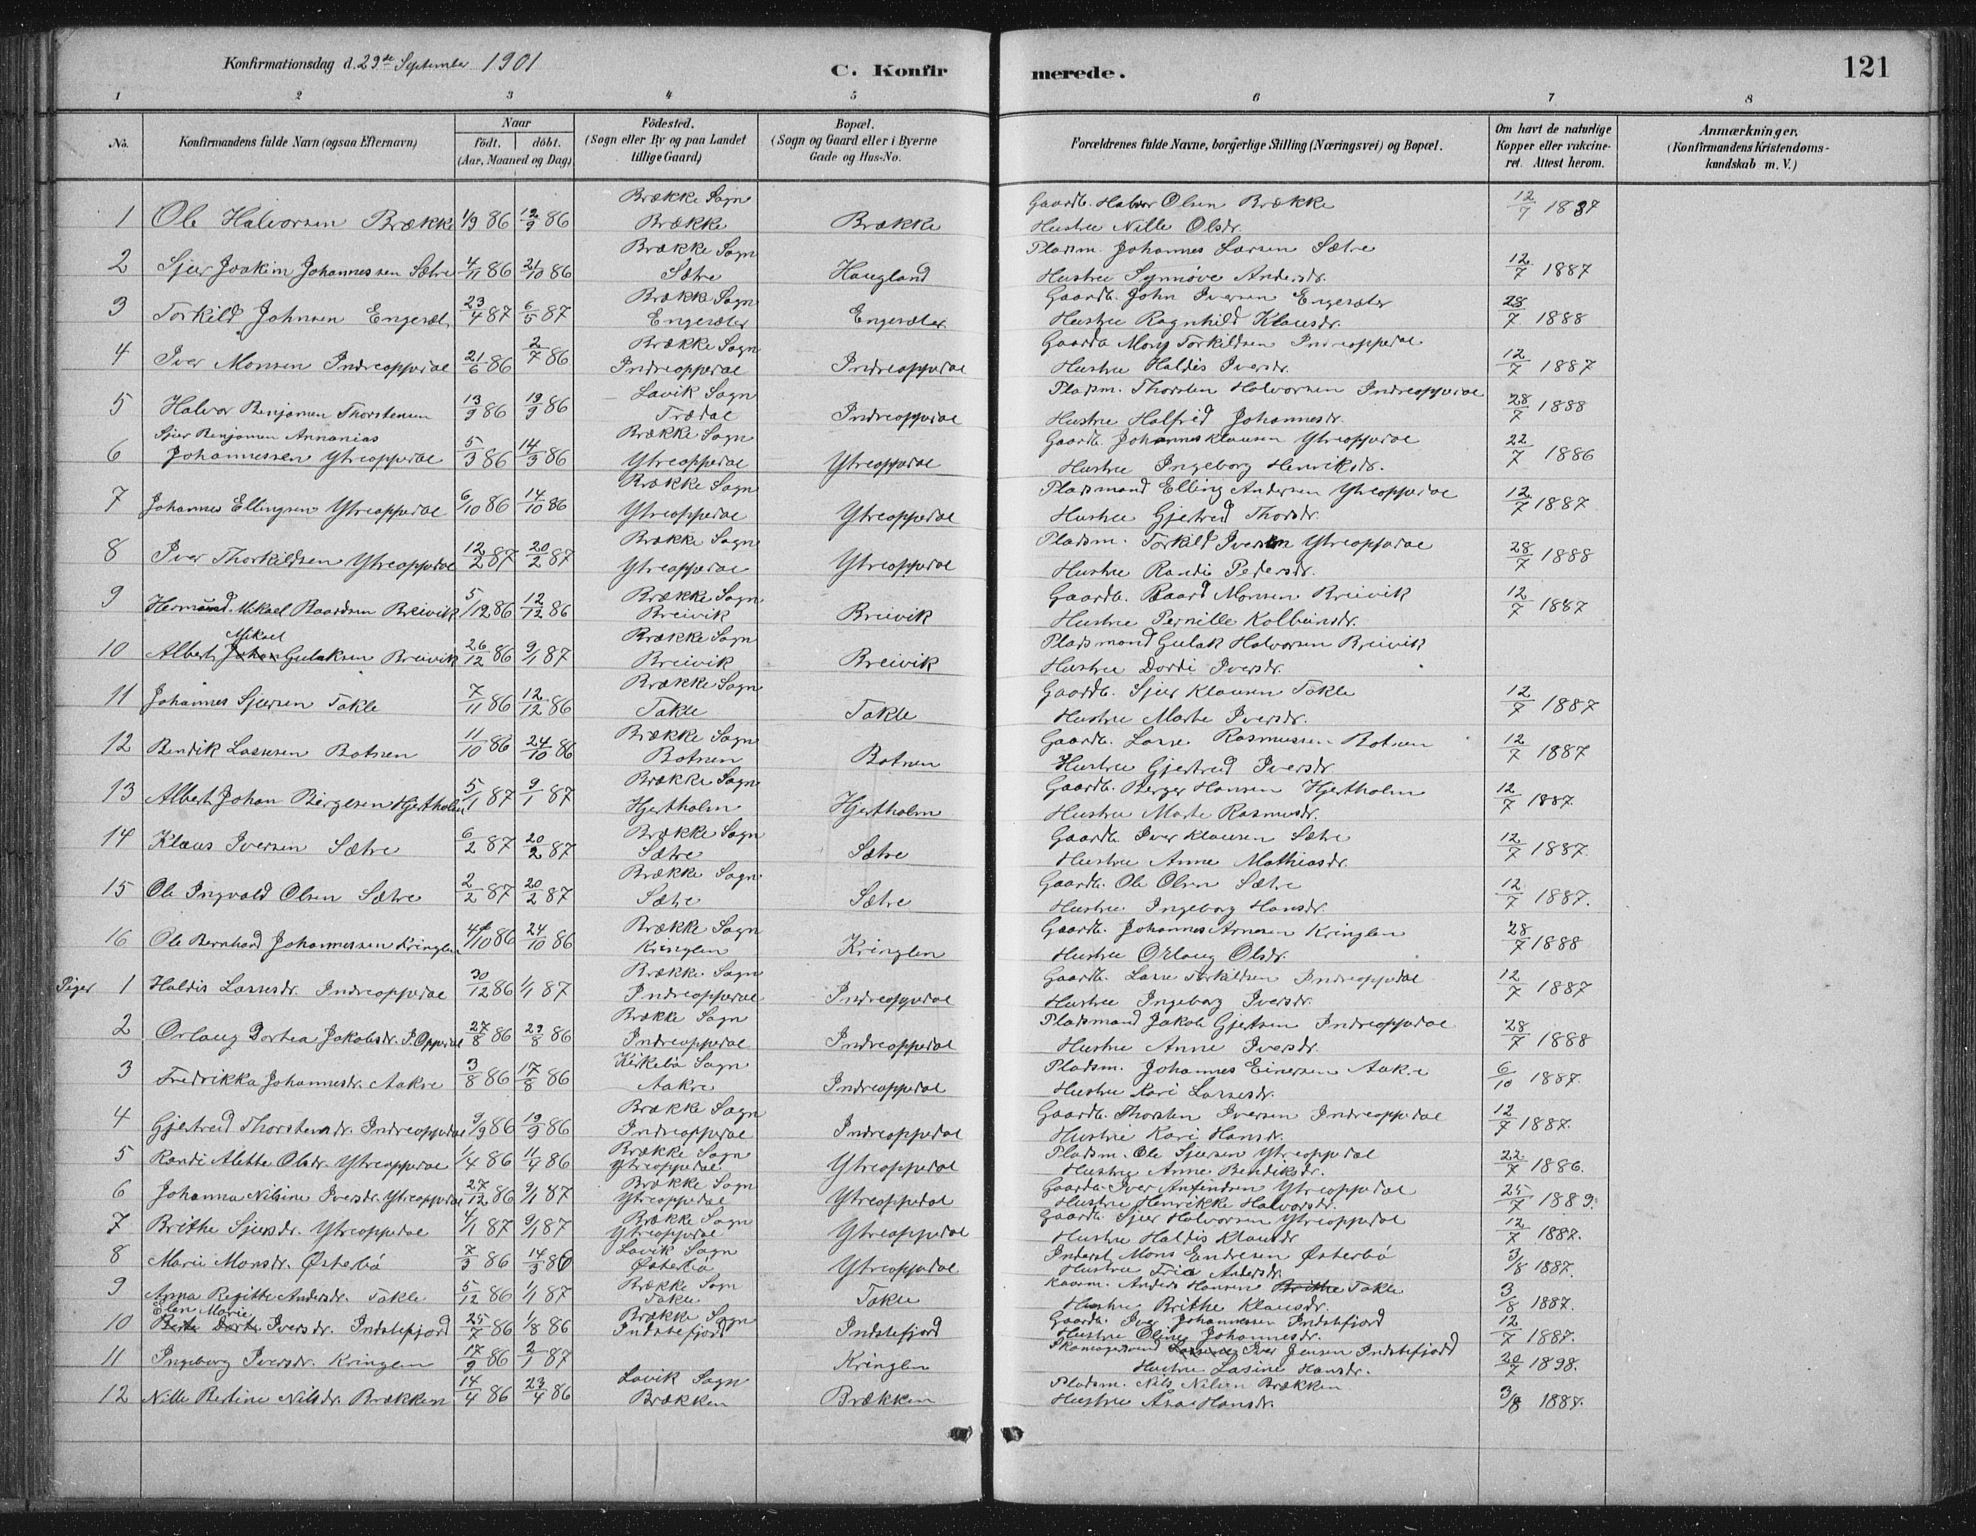 Konfirmationsdag d. 29de September 1901
C. Konfirmerede.
121
1 2 3 4 5 6 7 8
No.
Konfirmandens fulde Navn (ogsaa Efternavn)
Naar
födt. döbt.
(Aar, Maaned og Dag)
Födested.
(Sogn eller By og paa Landet
tillige Gaard)
Bopæl.
(Sogn og Gaard eller i Byerne
Gade og Hus-No.
Forældrenes fulde Navne, borgerlige Stilling (Næringsvei) og Bopæl.
Om havt de naturlige
Kopper eller vakcine-
ret. Attest herom.
Anmærkninger.
(Konfirmandens Kristendoms-
kundskab m. V.)
1 Ole Halvorsen Brække 1/9 86 12/9 86 Brække Sogn Brække Brække Gaardb. Halvor Olsen Brække Hustru Nille Olsdr. 12/7 1887
2 Sjur Joakim Johannessen Sætre 4/11 86 21/10 86 Brække Sogn Sætre Haugland Pladsm. Johannes Larsen Sætre Hustru Synnöve Andersdr. 12/7 1887
3 Torkild Johnsen Engesæt. 23/4 87 6/5 87 Brække Sogn Engesæter Engesæter Gaardb. John Iversen Engesæter Hustru Ragnhild Klausdr. 28/7 1888
4 Iver Monsen Indreoppedal 21/6 86 2/7 86 Brække Sogn Indreoppedal Indreoppedal Gaardb. Mons Torkildsen Indreoppedal Hustru Haldis Iversdr. 12/7 1887
5 Halvor Benjamen Thorstensen 13/9 86 19/9 86 Lavik Sogn Trædal Indreoppedal Pladsm. Thorsten Halvorsen Indreoppedal Hustru Halfrid Johannesdr. 28/7 1888
6 Sjur Benjamen Annanias Johannessen Ytreoppedal 5/3 86 14/3 86 Brække Sogn Ytreoppedal Ytreoppedal Gaardb. Johannes Klausen Ytreoppedal Hustru Ingeborg Henriksdr. 22/7 1886
7 Johannes Ellingsen Ytreoppedal 6/10 86 14/10 86 Brække Sogn Ytreoppedal Ytreoppedal Pladsmand Elling Andersen Ytreoppedal Hustru Gjertrud Thorsdr. 12/7 1887
8 Iver Thorkildsen Ytreoppedal 12/2 87 20/2 87 Brække Sogn Ytreoppedal Ytreoppedal Pladsm. Torkild Iversen Ytreoppedal Hustru Randi Pedersdr. 28/7 1888
9 Hermund Mikael Baardsen Breivik 5/12 86 12/12 86 Brække Sogn Breivik Breivik Gaardb. Baard Monsen Breivik Hustru Pernille Kolbeinsdr. 12/7 1887
10 Albert Johan Mikael Gulaksen Breivik 26/12 86 9/1 87 Brække Sogn Breivik Breivik Pladsmand Gulak Halvorsen Breivik Hustru Dordi Iversdr.
11 Johannes Sjursen Takle 7/11 86 12/12 86 Brække Sogn Takle Takle Gaardb. Sjur Klausen Takle Hustru Marte Iversdr. 12/7 1887
12 Bendik Lassesen Botnen 11/10 86 24/10 86 Brække Sogn Botnen Botnen Gaardb. Lasse Rasmussen Botnen Hustru Gjertrud Iversdr. 12/7 1887
13 Albert Johan Bergesen Hjertholm 5/1 87 9/1 87 Brække Sogn Hjertholm Hjertholm Gaardb. Berger Hansen Hjertholm Hustru Marte Rasmusdr. 12/7 1887
14 Klaus Iversen Sætre 6/2 87 20/2 87 Brække Sogn Sætre Sætre Gaardb. Iver Klausen Sætre Hustru Anne Mathiasdr. 12/7 1887.
15 Ole Ingvald Olsen Sætre 2/2 87 20/2 87 Brække Sogn. Sætre Sætre Gaardb. Ole Olsen Sætre Hustru Ingeborg Hansdr. 12/7 1887.
16 Ole Bernhard Johannessen Kringlen 4/10 86 24/10 86 Brække Sogn Kringlen Kringlen Gaardb. Johannes Arnesen Kringlen Hustru Orlaug Olsdr. 28/7 1888
Piger 1 Haldis Lassesdr. Indreoppedal 30/12 86 1/1 87 Brække Sogn Indreoppedal Indreoppedal Gaardb. Lasse Torkildsen Indreoppedal Hustru Ingeborg Iversdr. 12/7 1887
2 Orlaug Dortea Jakobsdr. I. Oppedal 27/8 86 29/8 86 Brække Sogn Indreoppedal Indreoppedal Pladsmand Jakob Gjertsen Indreoppedal Hustru Anne Iversdr. 28/7 1888
3 Fredrikka Johannesdr. Aakre 3/8 86 17/8 86 Kirkebö Sogn Aakre Indreoppedal Pladsm. Johannes Einersen Aakre Hustru Kari Larsesdr. 6/10 1887.
4 Gjertrud Thorstensdr. Indreoppedal 9/9 86 19/9 86 Brække Sogn Indreoppedal Indreoppedal Gaardb. Thorsten Iversen Indreoppedal Hustru Kari Hansdr. 12/7 1887.
5 Randi Alette Olsdr. Ytreoppedal 1/4 86 11/4 86 Brække Sogn Ytreoppedal Ytreoppedal Pladsm. Ole Sjursen Ytreoppedal Hustru Anne Bendiksdr. 22/7 1886.
6 Johanna Nilsine Iversdr. Ytreoppedal 27/12 86 9/1 87 Brække Sogn Ytreoppedal Ytreoppedal Gaardb. Iver Anfindsen Ytreoppedal Hustru Henrikke Halvorsdr. 25/7 1889.
7 Brithe Sjursdr. Ytreoppedal 4/1 87 9/1 87 Brække Sogn Ytreoppedal Ytreoppedal Gaardb. Sjur Halvorsen Ytreoppedal Hustru Haldis Klausdr 12/7 1887.
8 Marie Monsdr. Østerbö 7/3 86 14/3 86 Lavik Sogn Østerbö Ytreoppedal Inderst Mons Endresen Østerbö Hustru Andersdr. 3/8 1887.
9 Anna Regitte Andersdr. Takle 5/12 86 1/1 87 Brække Sogn Takle Takle Anders Hansen Brithe Takle Hustru Brithe Klausdr. 3/8 1887.
10 Elen Marie Dorte Iversdr. Indstefjord 25/7 86 1/8 86 Brække Sogn Indstefjord Indstefjord Gaardb. Iver Johannessen Indstefjord Hustru Oline Johannesdr. 12/7 1887.
11 Ingeborg Iversdr. Kringlen 17/9 86 2/1 87 Kringlen Iver Jensen Indstefjord Hustru Lasine Hansdr. 20/7 1898.
12 Nille Bertine Nilsdr. Brækken 14/4 86 23/4 86 Lavik Sogn Brækken Brækken Pladsm. Nils Nilsen Brækken Hustru Åsa Hansdr. 3/8 1887.